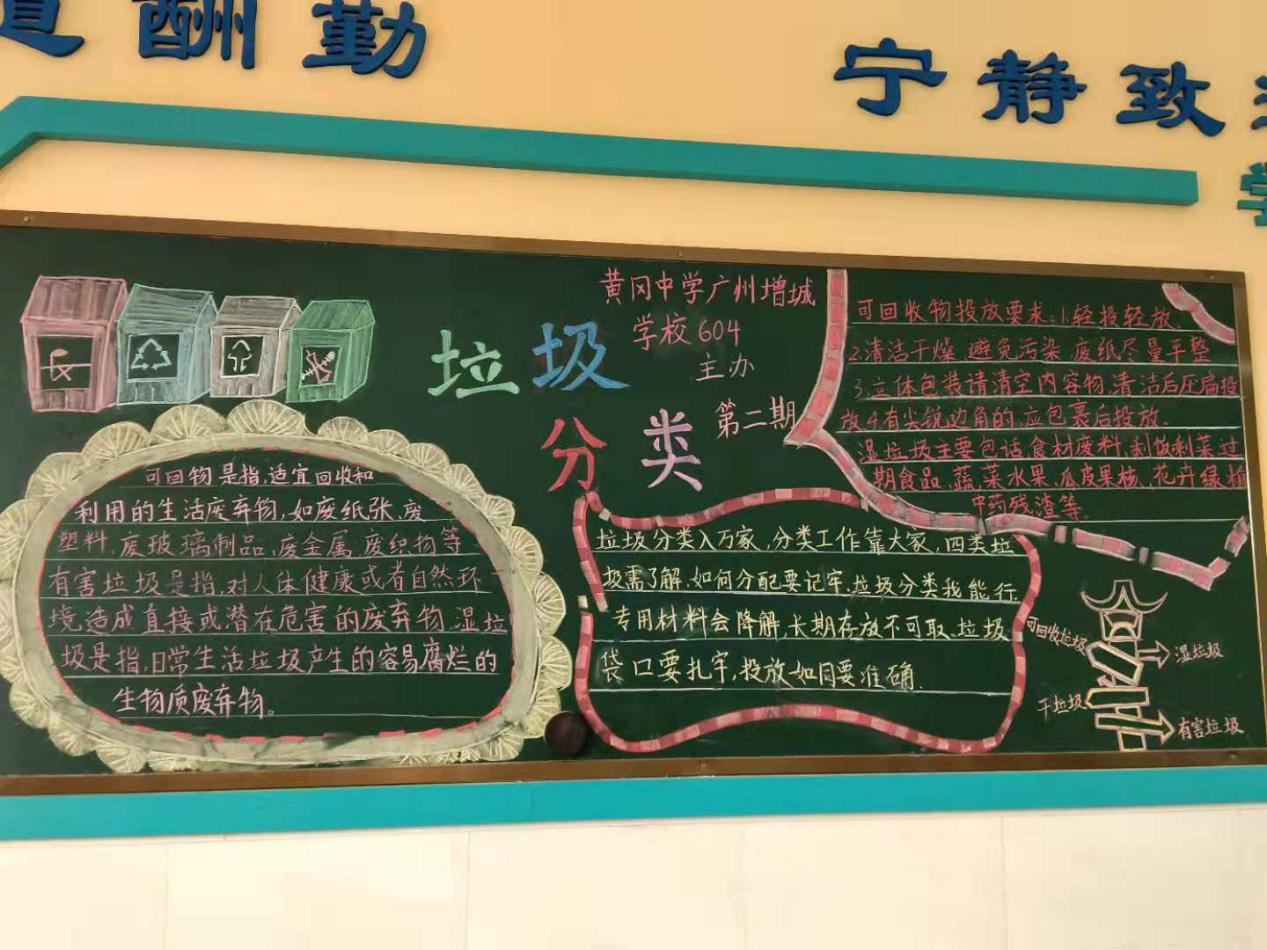 道酬勤
宁静致
学
黄冈中学广州增城
学校604
主办
第二期
垃圾
分类
可回物是指,适宜回收和
利用的生活废弃物,如废纸张、废
塑料,废玻璃制品,废金属,废织物等
有害垃圾是指,对人体健康或者自然环
境造成直接或潜在危害的废弃物,湿垃
圾是指,日常生活垃圾产生的容易腐烂的
生物质废弃物。
垃圾分类入万家,分类工作靠大家,四类垃
圾需了解,如何分配要记牢,垃圾分类我能行
专用材料会降解,长期存放不可取,垃圾
袋口要扎牢,投放如目要准确.
可回收物投放要求:1.轻投轻放.
2.清洁干燥、避免污染,废纸尽量平整
3.立体包装请清空内容物,清洁后压扁投
放4.有尖锐边角的,应包裹后投放.
湿垃圾主要包话,食材废料,剩饭剩菜,过
期食品、蔬菜水果、瓜皮果核、花卉绿植
中药残渣等。
可回收垃圾
湿垃圾
干垃圾
有害垃圾